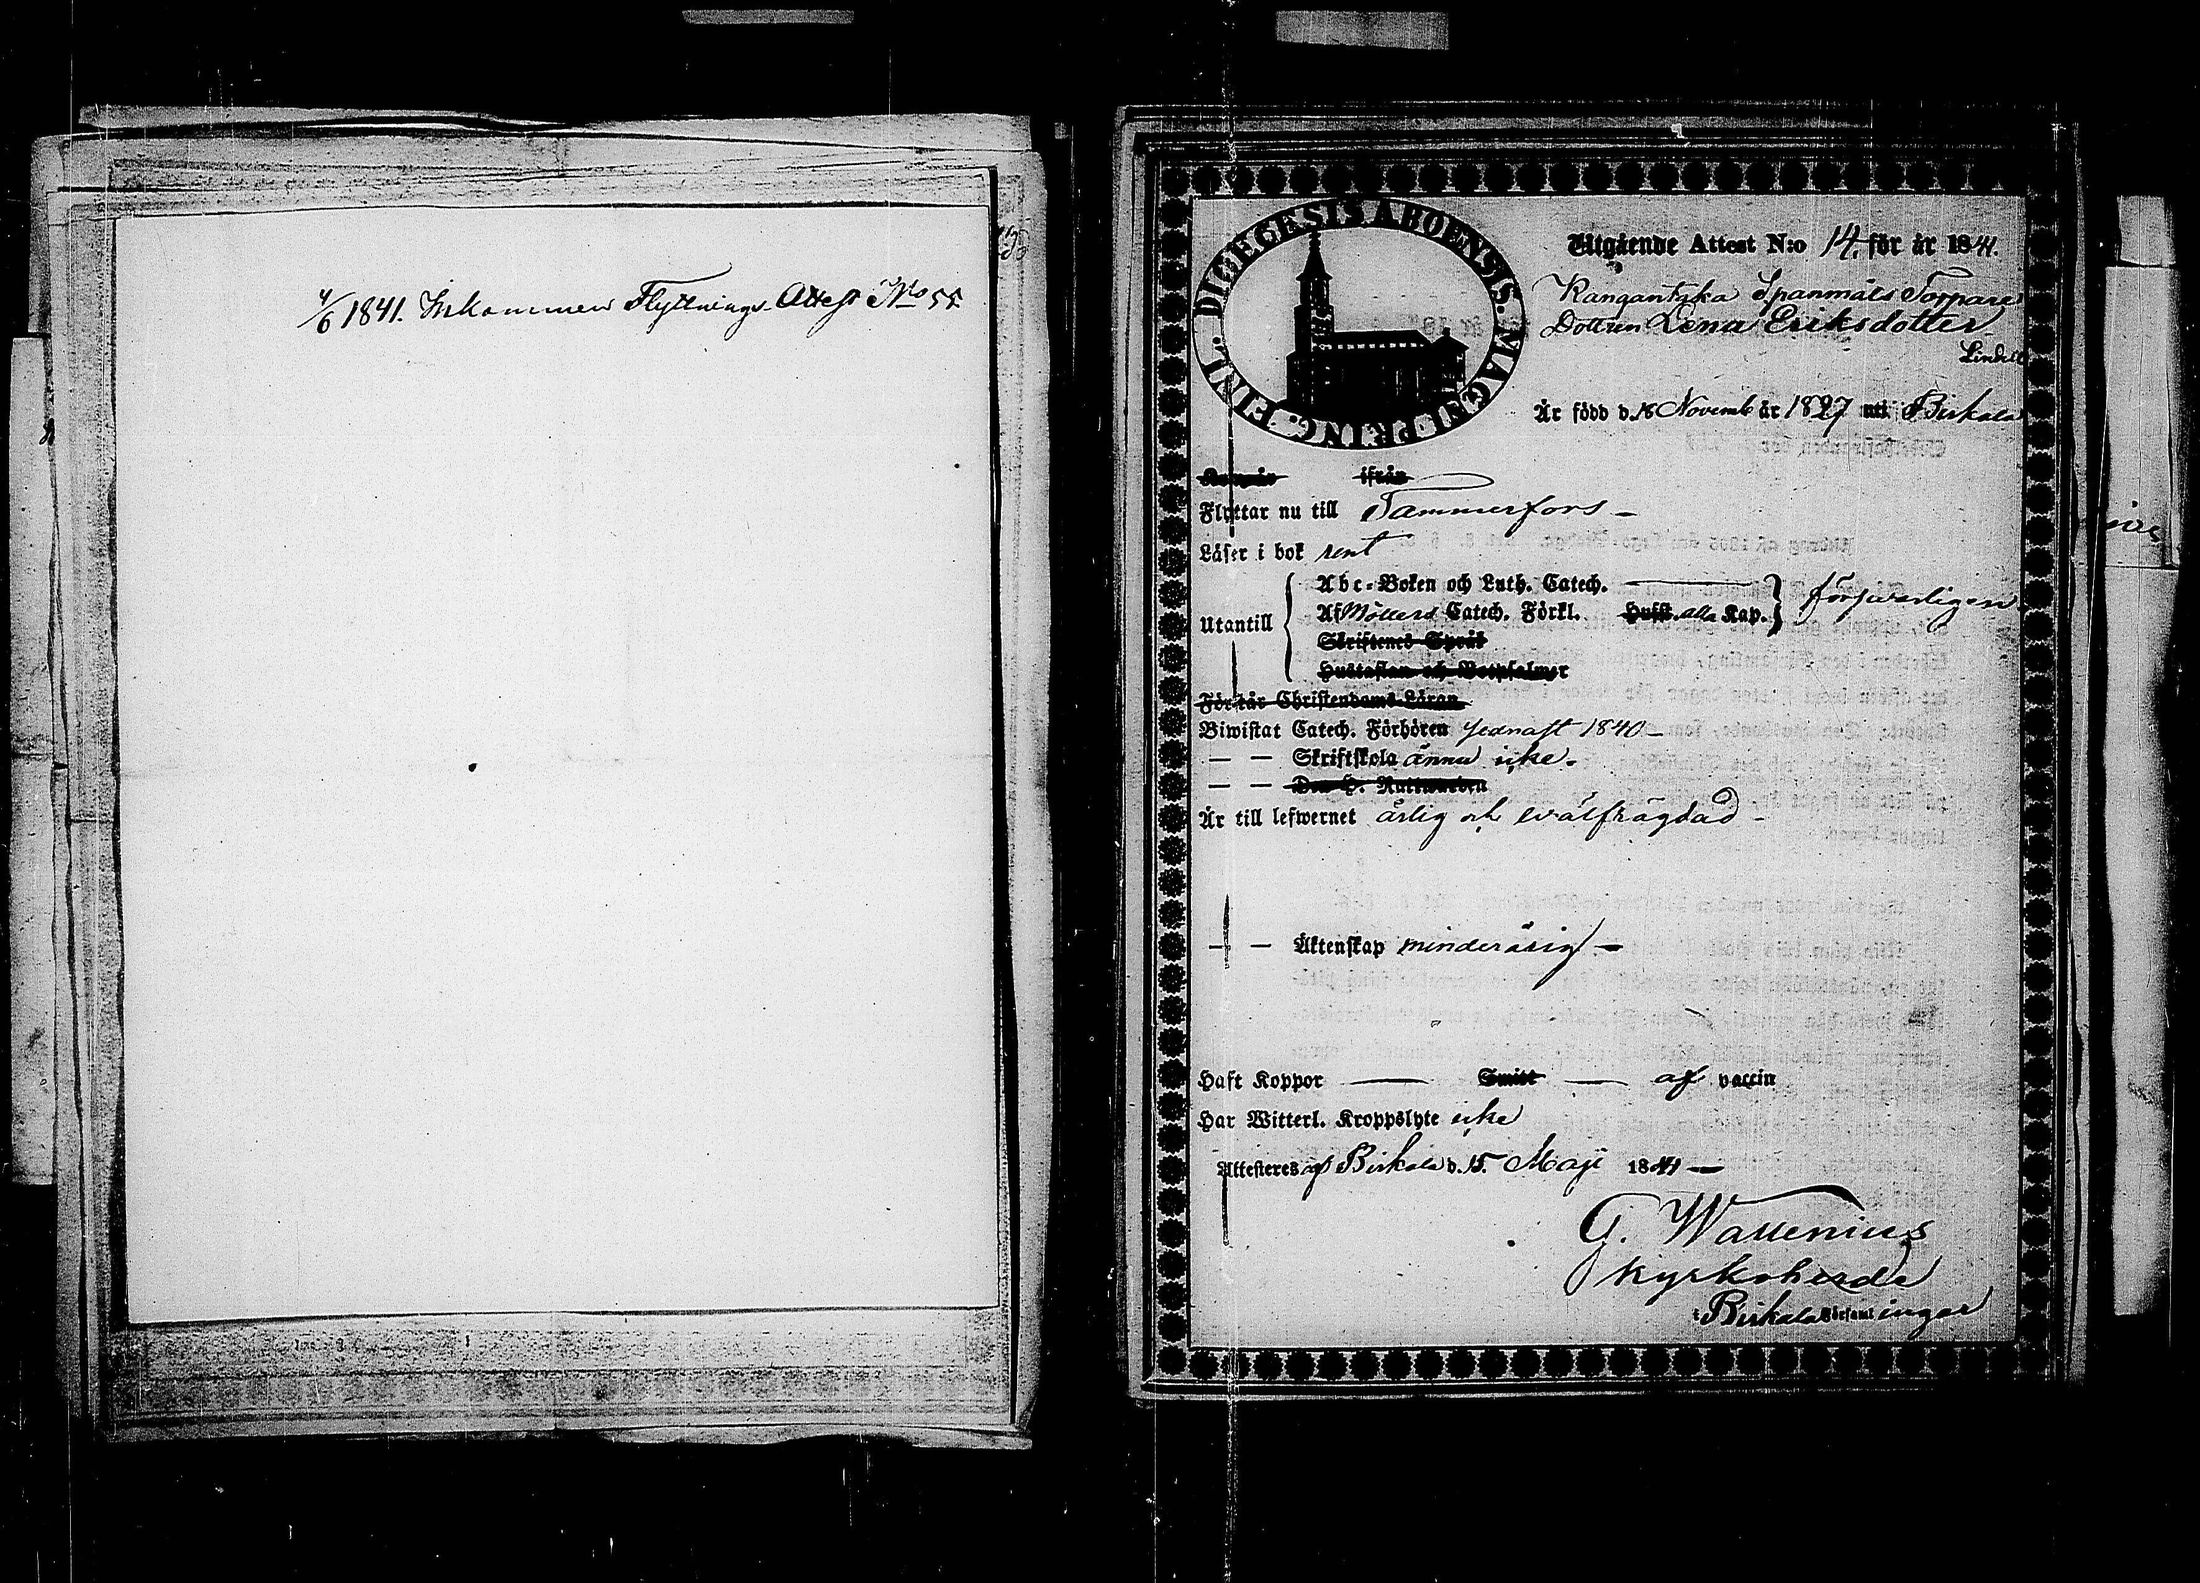 4/6 1841. Inkommen Flyttnings Attest No 55
DIOECESIS ABOENSIS. MAGNI PRINC. FINL.
Utgående Attest N:o 14 för år 1841.
Kangantaka Spanmåls Torpare
Dottren Lena Eriksdotter
Lindell
Är född d. 18 Novemb år 1827 uti Birkala
Kom år ifrån
Flyttar nu till Tammerfors -
Läser i bok rent
Abc-Boken och Luth. Catech. —
Utantill Af Möllers Catech. Förkl. Hufst. alla Kap. försvarligen
Skriftenes Språk
Hustaflan och Botpsalmer
Förstår Christendoms Läran
Biwistat Catech. Förhören sednast 1840 -
— — Skriftskola ännu icke.
— — Den H. Nattvarden
Är till lefwernet ärlig och wälfrägdad -
— — Äktenskap minderårig -
Haft Koppor — Smitt — af vaccin
Har Witterl. Kroppslyte icke
Attesteres af Birkala d. 15. Maji 1841 —
G. Wallenius
Kyrkoherde
i Birkala Församlingar